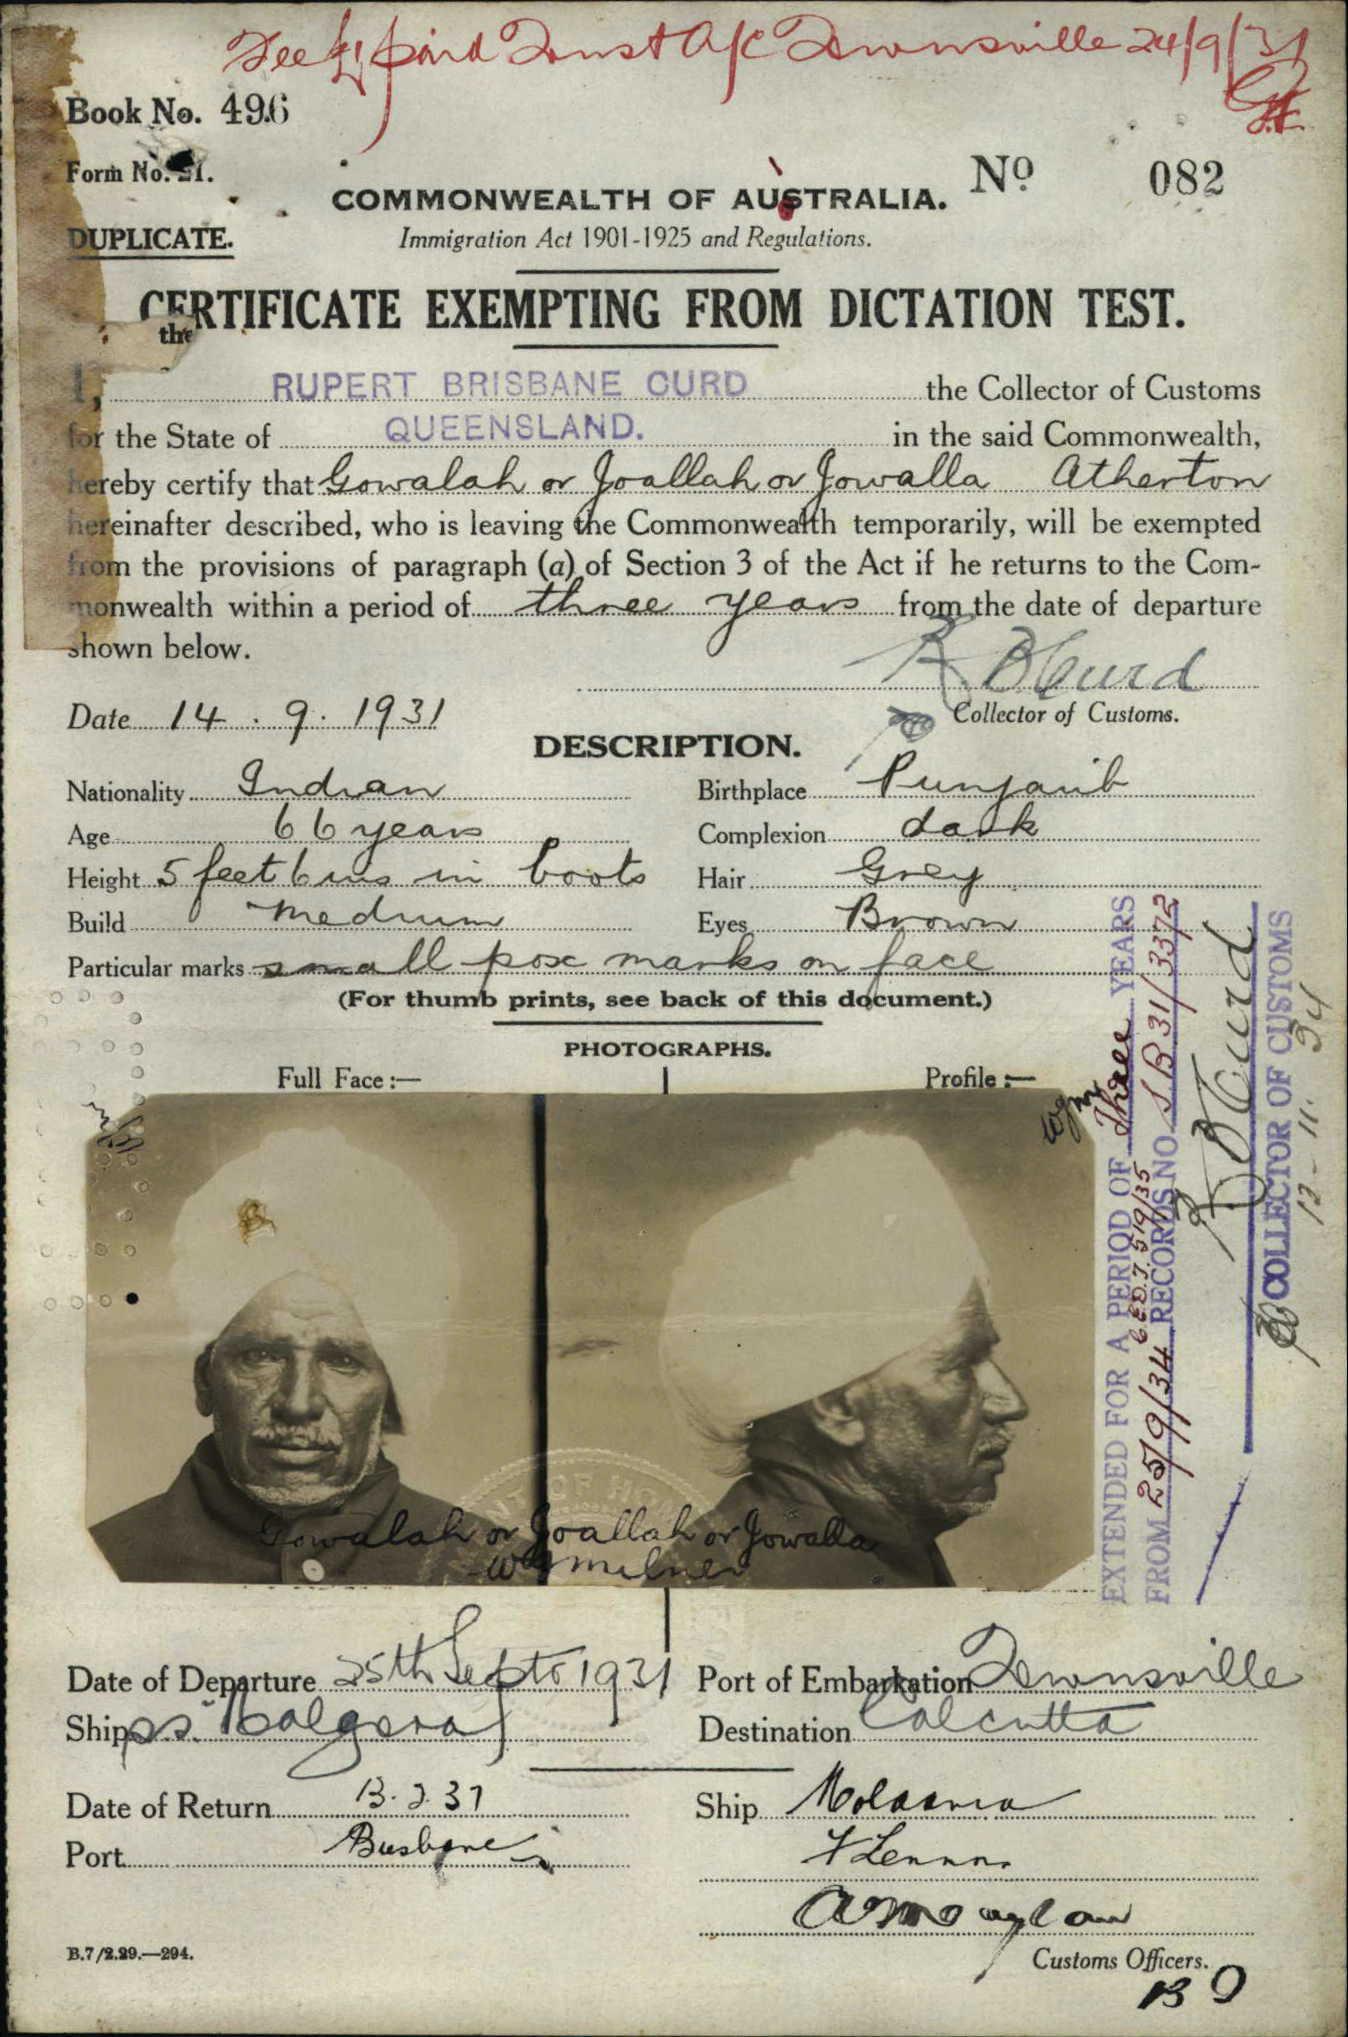 Fee £1 paid Trust A/c Townsville 24/9/31
Book No. 496
Form No. 21.
No 082
COMMONWEALTH OF AUSTRALIA.
DUPLICATE.
Immigration Act 1901-1925 and Regulations.
CERTIFICATE EXEMPTING FROM DICTATION TEST.
the
I, RUPERT BRISBANE CURD the Collector of Customs
for the State of QUEENSLAND. in the said Commonwealth,
hereby certify that Gowalah or Joallah or Jowalla Atherton
hereinafter described, who is leaving the Commonwealth temporarily, will be exempted
from the provisions of paragraph (a) of Section 3 of the Act if he returns to the Com-
monwealth within a period of three years from the date of departure
shown below.
R B Curd
Date 14 . 9 . 1931
Collector of Customs.
DESCRIPTION.
Nationality Indian Birthplace Punjaub
Age 66 years Complexion dark
Height 5 feet 6 ins in boots Hair Grey
Build medium Eyes Brown
Particular marks small pox marks on face
(For thumb prints, see back of this document.)
PHOTOGRAPHS.
Full Face:— Profile:—
Gowalah or Joallah or Jowalla
W G Milner
EXTENDED FOR A PERIOD OF Three YEARS
C.E.D.T. 519/35
FROM 25/9/34 RECORDS NO S.B 31/3372
R B Curd
COLLECTOR OF CUSTOMS
12-11-34
Date of Departure 25th Sept 1931 Port of Embarkation Townsville
Ship s.s. Nalgora Destination Calcutta
Date of Return 13.2.37 Ship
Port Brisbane
Customs Officers.
B.7/2.29.—294.